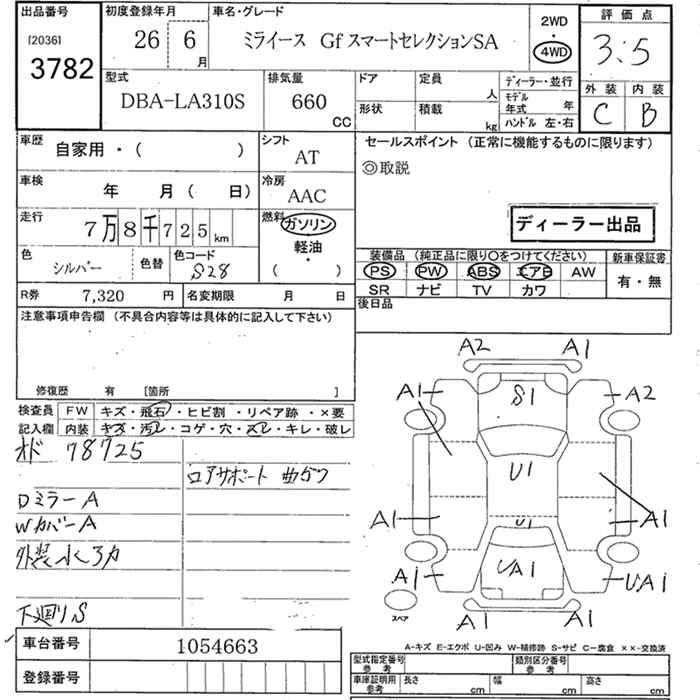 出品番号 初度登録年月日 車名・グレード 2WD 評価点
[2036] 26 6月 ミライース Gf スマートセレクションSA 4WD 3.5
3782
型式 排気量 ドア 定員 人 ディーラー・並行 外装 内装
DBA-LA310S 660 CC 形状 積載 kg モデル年式 年 C B
ハンドル 左・右
車歴 自家用・( ) シフト AT セールスポイント (正常に機能するものに限ります)
◎取説
車検 年 月( 日) 冷房 AAC
走行 7万8千725km 燃料 ガソリン ディーラー出品
軽油・( )
色 シルバー 色替 色コード S28 装備品 (純正品に限り〇をつけてください) 新車保証書
PS PW ABS エアB AW 有・無
R券 7,320 円 名変期限 月 日 SR ナビ TV カワ
注意事項申告欄 (不具合内容等は具体的に記入して下さい) 後日品
修復歴 有 [箇所 ]
検査員 FW キズ・飛石・ヒビ割・リペア跡・×要
記入欄 内装 キズ・汚レ・コゲ・穴・スレ・キレ・破レ
オド 78725
ロアサポート 曲ガリ
Dミラー A
Wカバー A
下廻りS
A2 A1
A1 S1 A2
U1
A1 U1 A1
A1 UA1 UA1
スペア A1 A1
A-キズ E-エクボ U-凹み W-補修跡 S-サビ C-腐食 ××-交換済
車台番号 1054663
登録番号
型式指定番号 参考 類別区分番号 参考
車庫証明用 参考 長さ cm 幅 cm 高さ cm